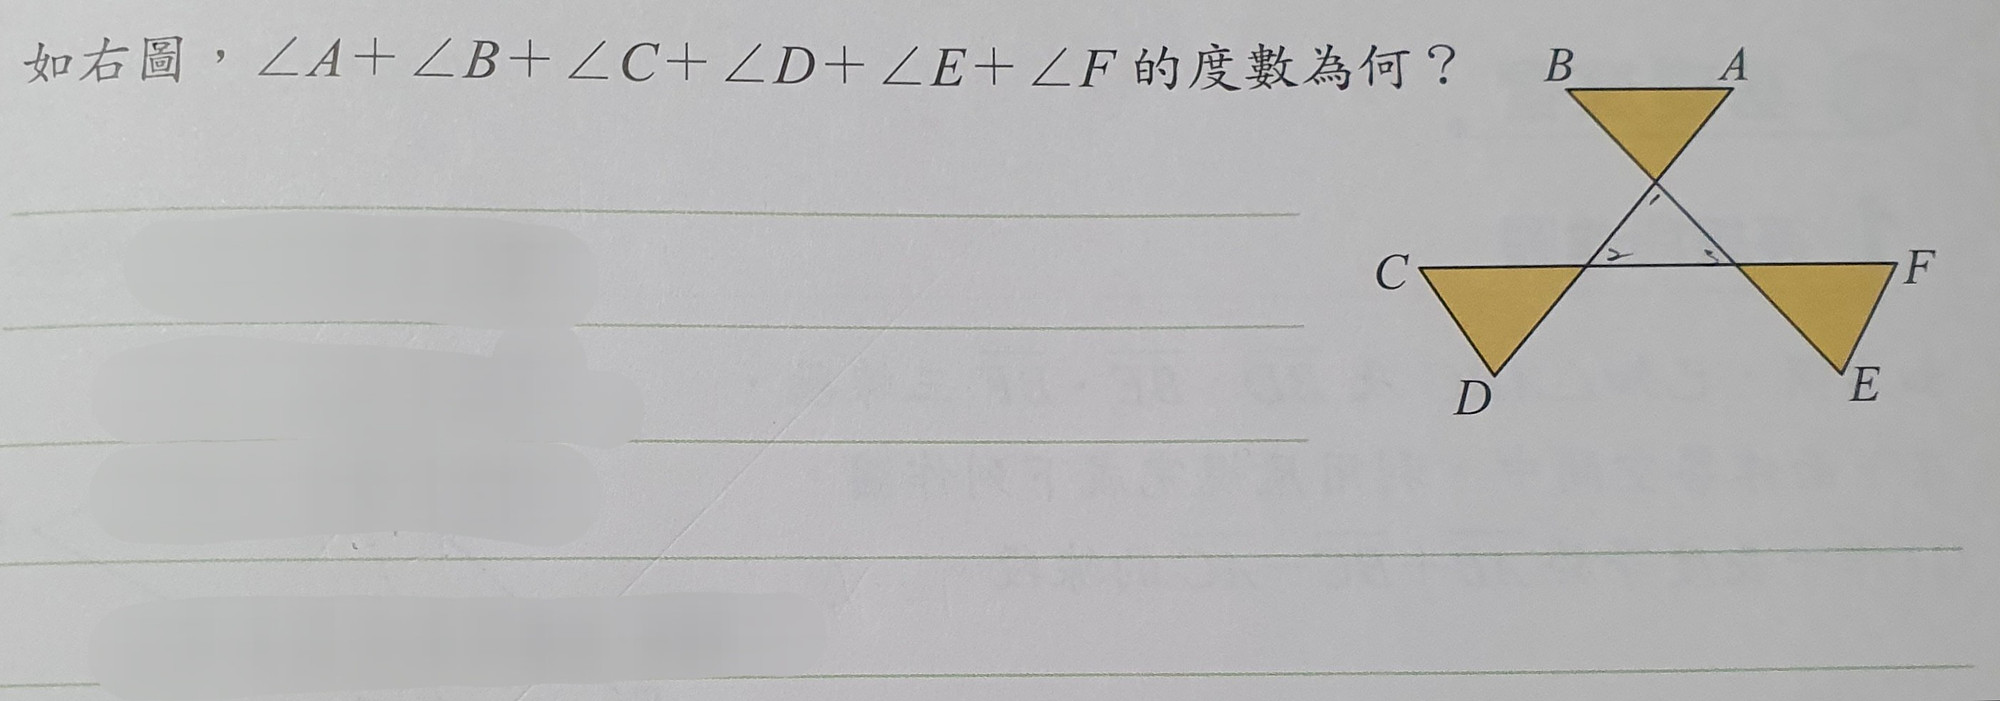 如右圖，∠A＋∠B＋∠C＋∠D＋∠E＋∠F 的度數為何？
B A
1
C 2 3 F
D E